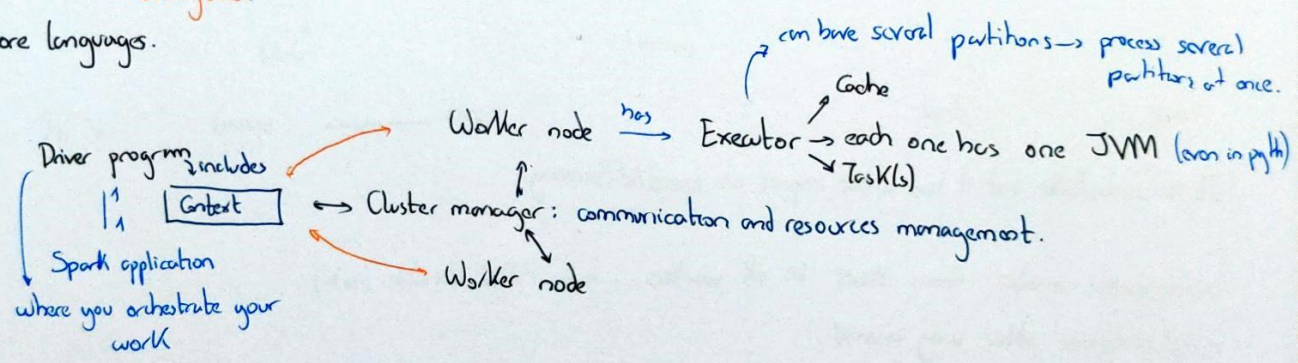 ore languages.
can have several partitions → process several
partitions at once.
Cache
Worker node has → Executor → each one has one JVM (even in pyth)
Task(s)
Driver program includes
Context
↔ Cluster manager: communication and resources management.
1
1
Spark application
Worker node
where you orchestrate your
work